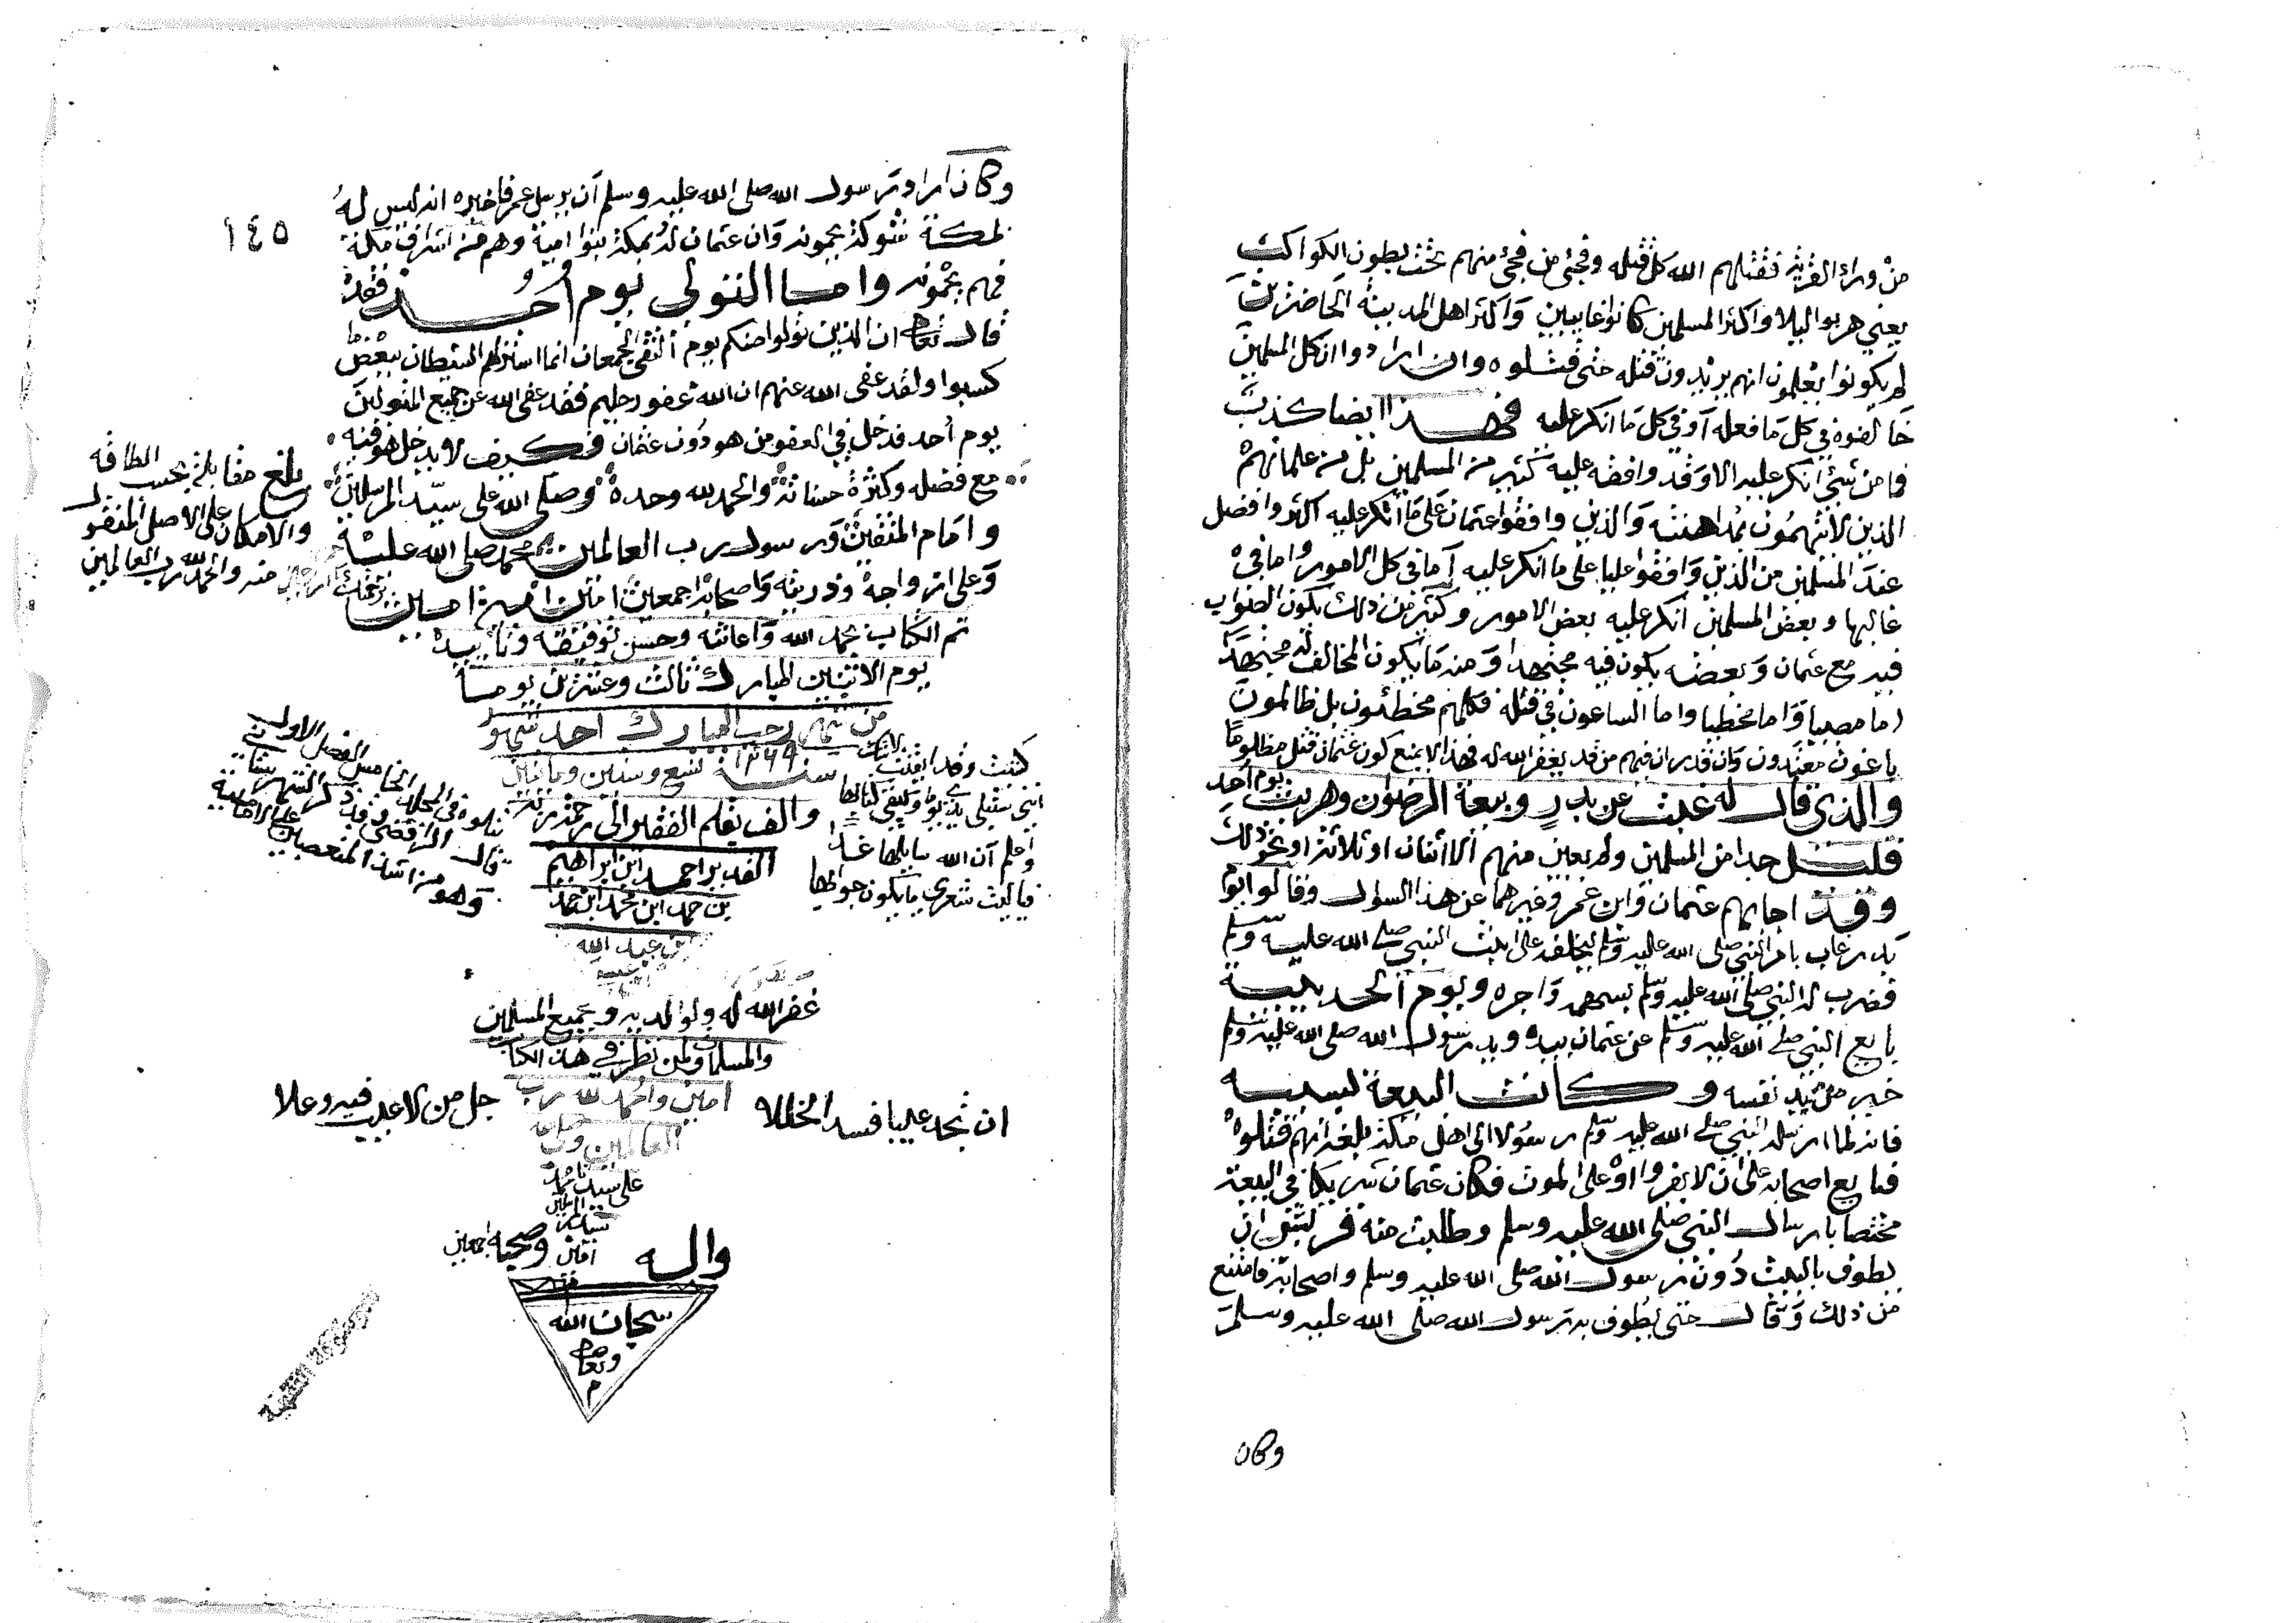 من وراء القرية فقتلهم الله كل قتله ونجى من نجى منهم تحت بطون الكواكب
يعني هربوا ليلا واكثر المسلمين كانوا غايبين واكثر اهل المدينة الحاضرين
لم يكونوا يعلمون انهم يريدون قتله حتى قتلوه وان ارادوا ان كل المسلمين
خالفوه في كل ما فعله او في كل ما انكر عليه فهذا ايضا كذب
فما من شيء انكر عليه الا وقد وافقه عليه كثير من المسلمين بل من علمائهم
الذين لا يتهمون بمداهنة والذين وافقوا عثمان على ما انكر عليه اكثر وافضل
عند المسلمين من الذين وافقوا عليا على ما انكر عليه اما في كل الامور واما في
غالبها وبعض المسلمين انكر عليه بعض الامور وكثير من ذلك يكون الصواب
فيه مع عثمان وبعضه يكون فيه مجتهدا ومنه ما يكون المخالف له مجتهدا
اما مصيبا واما مخطيا واما الساعون في قتله فكلهم مخطئون بل ظالمون
باغون معتدون وان قدر ان فيهم من قد يغفر الله له فهذا لا يمنع كون عثمان قتل مظلوما
والذي قال له غبت عن بدر وبيعة الرضوان وهربت يوم احد
قليل جدا من المسلمين ولم يعين منهم الا اثنان او ثلاثة او نحو ذلك
وقد اجابهم عثمان وابن عمر وغيرهما عن هذا السوال وقالوا يوم
بدر غاب بامر النبي صلى الله عليه وسلم ليخلفه على ابنت النبي صلى الله عليه وسلم
فضرب له النبي صلى الله عليه وسلم بسهمه واجره ويوم الحديبية
بايع النبي صلى الله عليه وسلم عن عثمان بيده ويد رسول الله صلى الله عليه وسلم
خير من يد نفسه وكانت البيعة لسببه
فانه لما ارسله النبي صلى الله عليه وسلم رسولا الى اهل مكة بلغه انهم قتلوه
فبايع اصحابه على ان لا يفروا او على الموت فكان عثمان شريكا في البيعة
مختصا بارسال النبي صلى الله عليه وسلم وطلبت منه قريش ان
يطوف بالبيت دون رسول الله صلى الله عليه وسلم واصحابه فامتنع
من ذلك وقال حتى يطوف به رسول الله صلى الله عليه وسلم
وكان
١٤٥
وكان اراد رسول الله صلى الله عليه وسلم ان يرسل عمر فاخبره انه ليس له
بمكة شوكة يحمونه وان عثمان له بمكة بنوا امية وهم من اشراف مكة
فهم يحمونه واما التولي يوم احد فقد
قال تعالى ان الذين تولوا منكم يوم التقى الجمعان انما استزلهم الشيطان ببعض ما
كسبوا ولقد عفى الله عنهم ان الله غفور حليم فقد عفى الله عن جميع المتولين
يوم احد فدخل في العفو من هو دون عثمان فكيف لا يدخل هو فيه
مع فضله وكثرة حسناته والحمد لله وحده وصلى الله على سيد المرسلين
وامام المتقين ورسول رب العالمين محمد صلى الله عليه
وعلى ازواجه وذريته واصحابه اجمعين امين امين امين
تم الكتاب بحمد الله واعانته وحسن توفيقه وتأييده
يوم الاثنين المبارك ثالث وعشرين يوما
من شهر رجب المبارك احد شهور
سنة ١٢٦٩ تسع وستين ومايتين
والف بقلم الفقير الى رحمة ربه
القدير احمد ابن ابراهيم
بن حمد ابن محمد ابن حمد
ابن عبد الله
غفر الله له ولوالديه وجميع المسلمين
والمسلمات ولمن نظر في هذا الكتاب
امين والحمد لله رب
العالمين
على سيدنا محمد
امين
واله وصحبه اجمعين
سبحان الله
وتعالى
م
بلغ مقابلة بحسب الطاقة
والامكان على الاصل المنقول
منه والحمد لله رب العالمين
يتلوه في المجلد الخامس الفصل الاول
قال الرافضي وقد ذكر الشهرستاني
وهو من اشد المتعصبين على الامامية
كتبت وقد ايقنت لا شك
انني ستبلى يدي يوما ويبقى كتابها
واعلم ان الله سايلها غدا
فيا ليت شعري ما يكون جوابها
ان تجد عيبا فسد الخللا
جل من لا عيب فيه وعلا